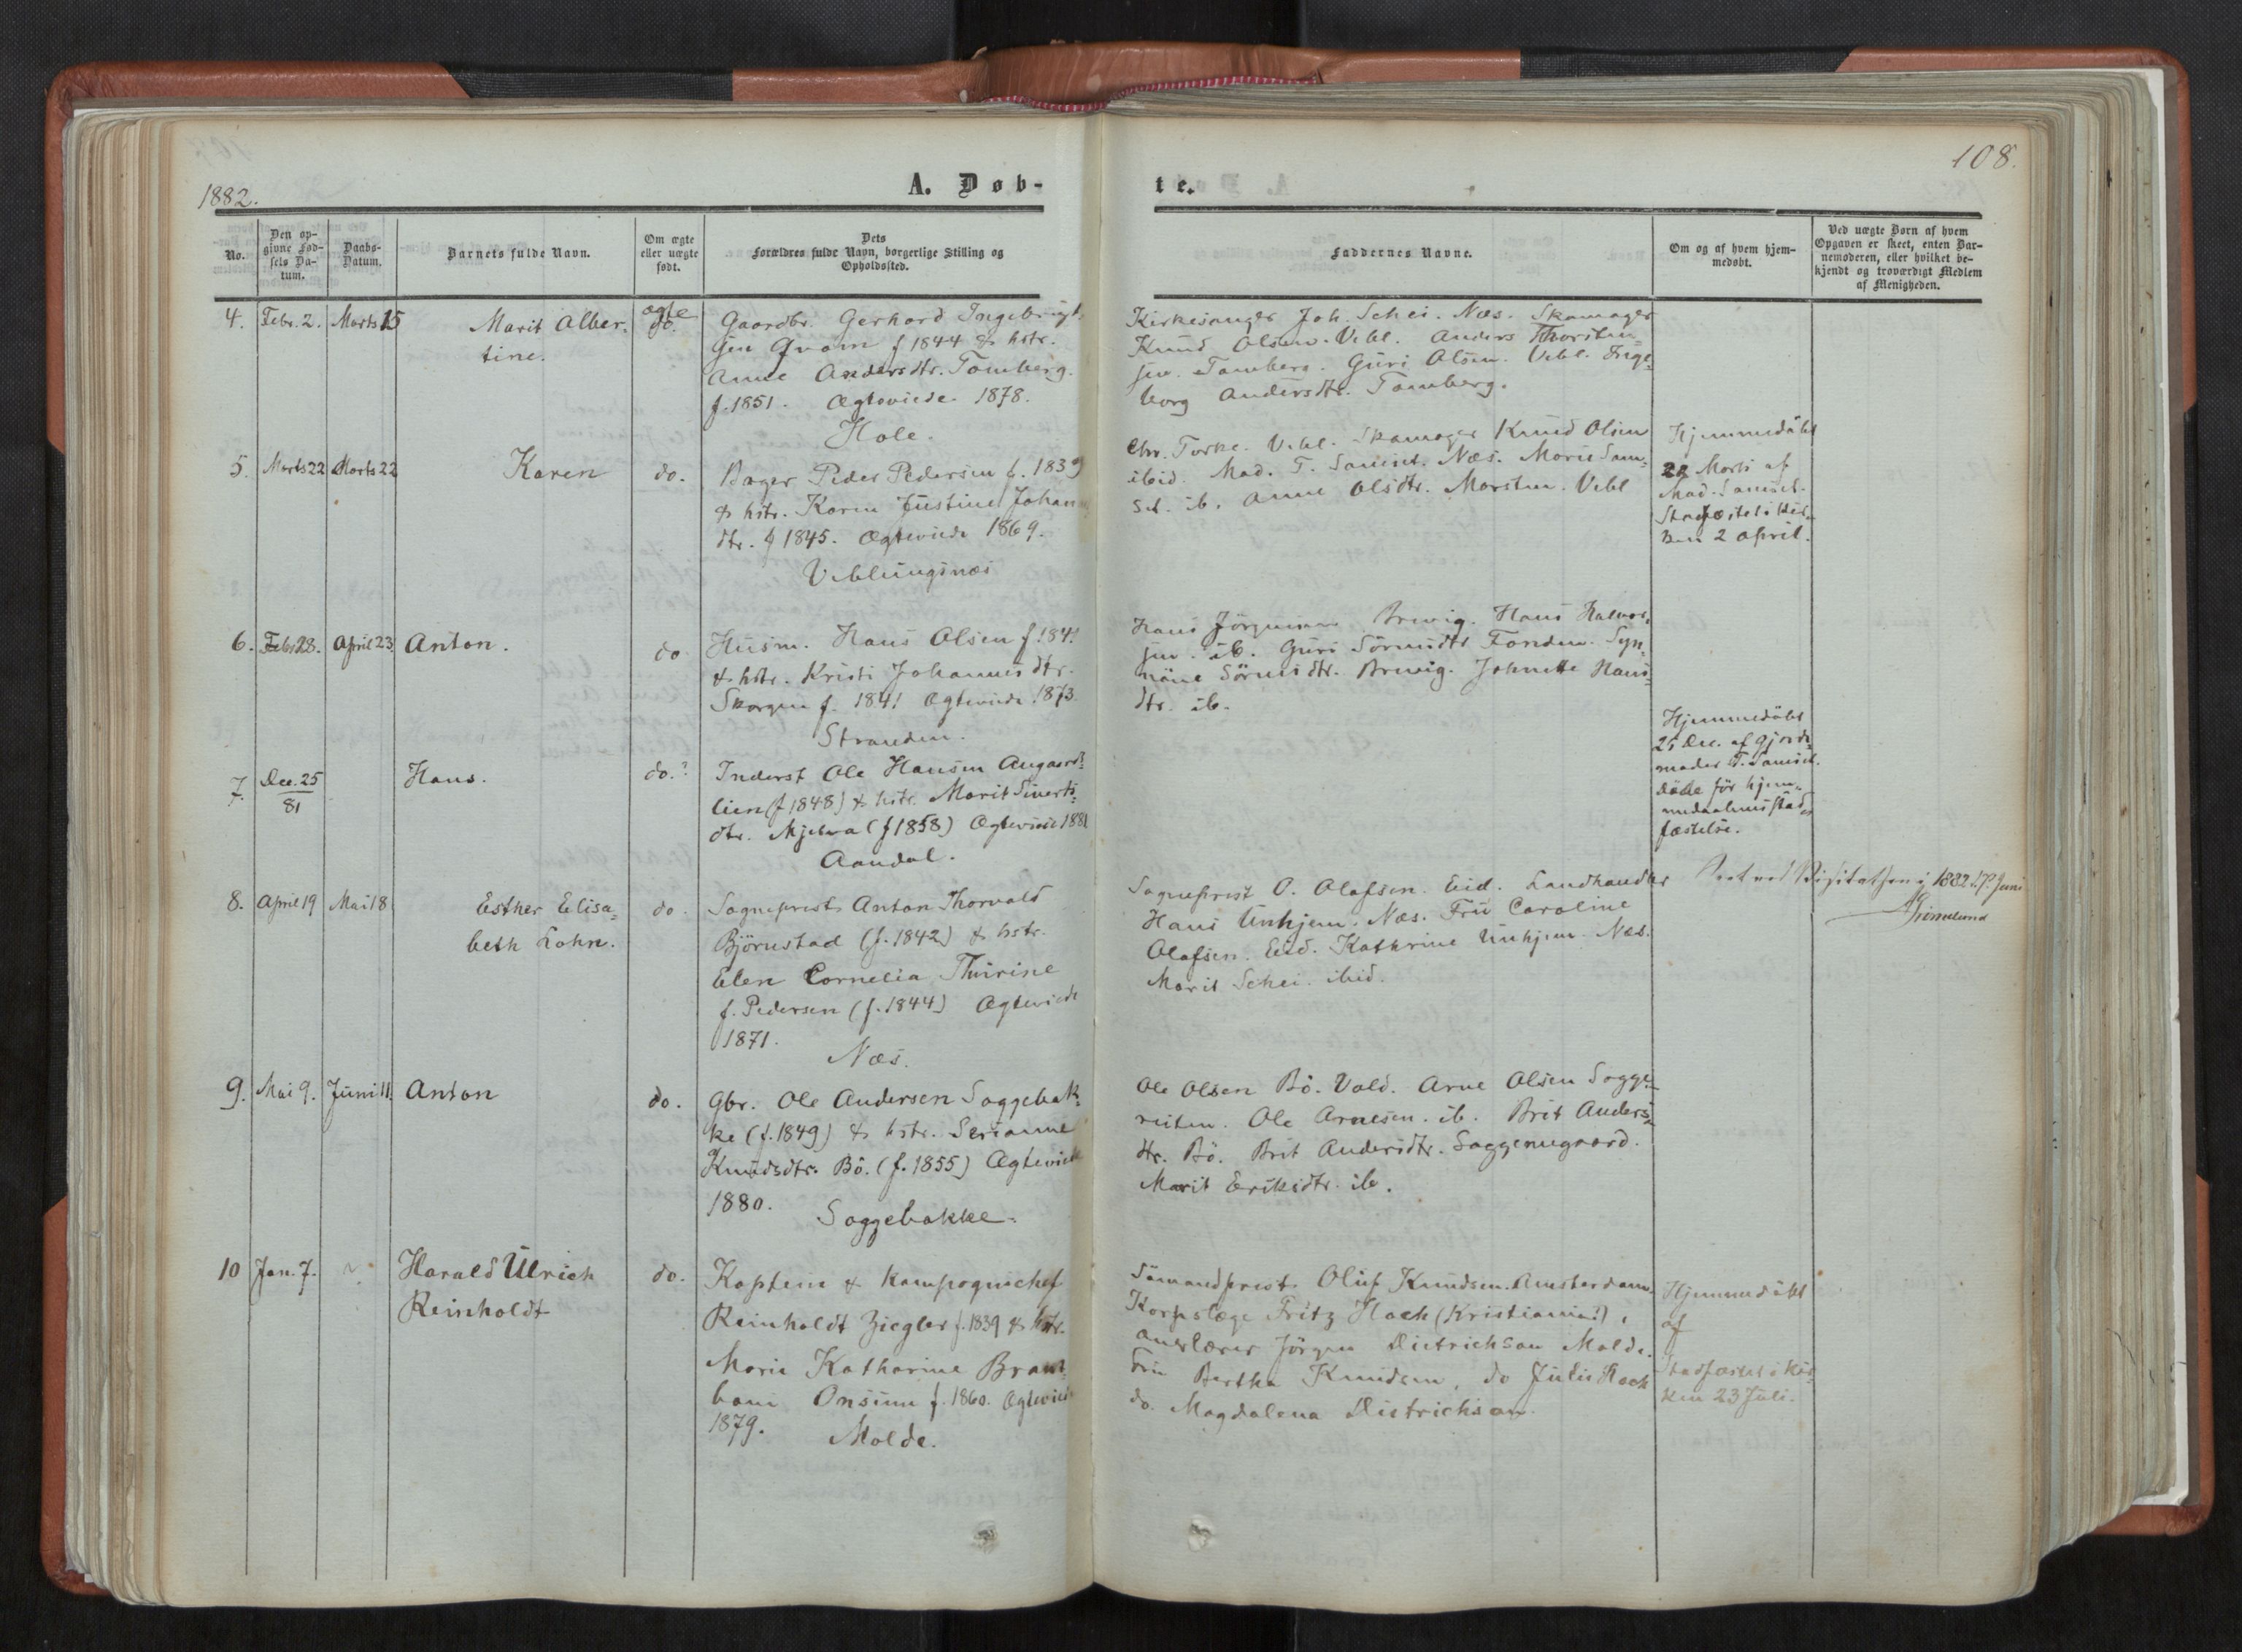 108.
1882.
A. Døb-
te.
No.
Den op-
givne Fød-
sels Da-
tum.
Daabs-
Datum.
Barnets fulde Navn.
Om ægte
eller uægte
født.
Dets
Forældres fulde Navn, borgerlige Stilling og
Opholdssted.
Faddernes Navne.
Om og af hvem hjem-
medøbt.
Ved uægte Børn af hvem
Opgaven er skeet, enten Bar-
nemoderen, eller hvilket be-
kjendt og troværdigt Medlem
af Menigheden.
4. Febr. 2. Marts 15
Marit Alber-
tine.
ægte
do.
Gaardbr. Gerhard Ingebrigt-
sen Qvam f 1844 & hstr.
Anne Andersdtr. Tomberg.
f. 1851. Ægteviede 1878.
Hole.
Kirkesanger Joh. Schei. Næs. Skomager
Knud Olsen. Vebl. Anders Thorsten-
sen. Tomberg. Guri Olsen. Vebl. Inge-
borg Andersdtr. Tomberg.
5. Marts 22 Marts 22
Karen
do.
Bager Peder Pedersen f. 1839
& hstr. Karen Justine Johan
dtr. f 1845. Ægteviede 1869.
Veblungsnæs
Chr. Torske. Vebl. Skomager Knud Olsen
ibid. Mad. T. Samset. Næs. Marie Sam-
set. ib. Anne Olsdtr. Marsten. Vebl
Hjemmedöbt
22 Marts af
Mad. Samset.
Stadfæstet i Kir-
ken 2 April.
6. Feb. 28. April 23.
Anton.
do
Husm. Hans Olsen f. 1841
& hstr. Kristi Johannesdtr.
Skorgen f. 1841 Ægteviede 1873.
Stranden.
Hans Jörgensen Brevig. Hans Halvor-
sen. ib. Guri Sörensdtr Fonden. Syn-
növe Sörensdtr. Brevig. Johnette Hans-
dtr. ib.
7. Dec. 25
81
Hans.
do.
Inderst Ole Hansen Augaard-
lien (f 1848) & hstr. Marit Siverts-
dtr. Mjelva (f 1858) Ægteviede 1881
Aandal.
Hjemmedöbt
25 Dec. af Gjorde-
moder T. Samset.
Döde för hjem-
medaabens stad-
fæstelse.
8. April 19 Mai 18
Esther Elisa-
beth Lohn.
do.
Sogneprest Anton Thorvald
Björnstad (f. 1842) & hstr.
Elen Cornelia Thurine
f. Pedersen (f. 1844) Ægteviede
1871.
Næs.
Sogneprest O. Olafsen. Eid. Landhandler
Hans Unhjem. Næs. Fru Caroline
Olafsen. Eid. Kathrine Unhjem. Næs.
Marit Schei. ibid.
Seet ved Visitatsen i 1882 d. 17 Juni
Grimelund
9. Mai 9. Juni 11.
Anton
do.
Gbr. Ole Andersen Soggebak-
ke (f. 1849) & hstr. Serianne
Knudsdtr. Bö. (f. 1855) Ægteviede
1880.
Soggebakke.
Ole Olsen Bö. Vold. Arne Olsen Sogge-
reiten. Ole Arnesen. ib. Brit Anders-
dtr. Bö. Brit Andersdtr. Soggemegaard.
Marit Eriksdtr. ib.
10 Jan. 7.
Harald Ulrich
Reinholdt
do.
Kaptein & Kompagnichef
Reinholdt Ziegler f. 1839 & hstr.
Marie Katharine
Onsum f. 1860. Ægteviede
1879.
Molde.
Sömandsprest Oluf Knudsen. Amsterdam.
Korpslæge Fritz Hoch (Kristiania!),
Jörgen Dietrichson Molde.
Fru Bertha Knudsen, do Julie Hoch
do. Magdalena Dietrichson.
Hjemmedöbt
af
Stadfæstet i Kir-
ken 23 Juli.